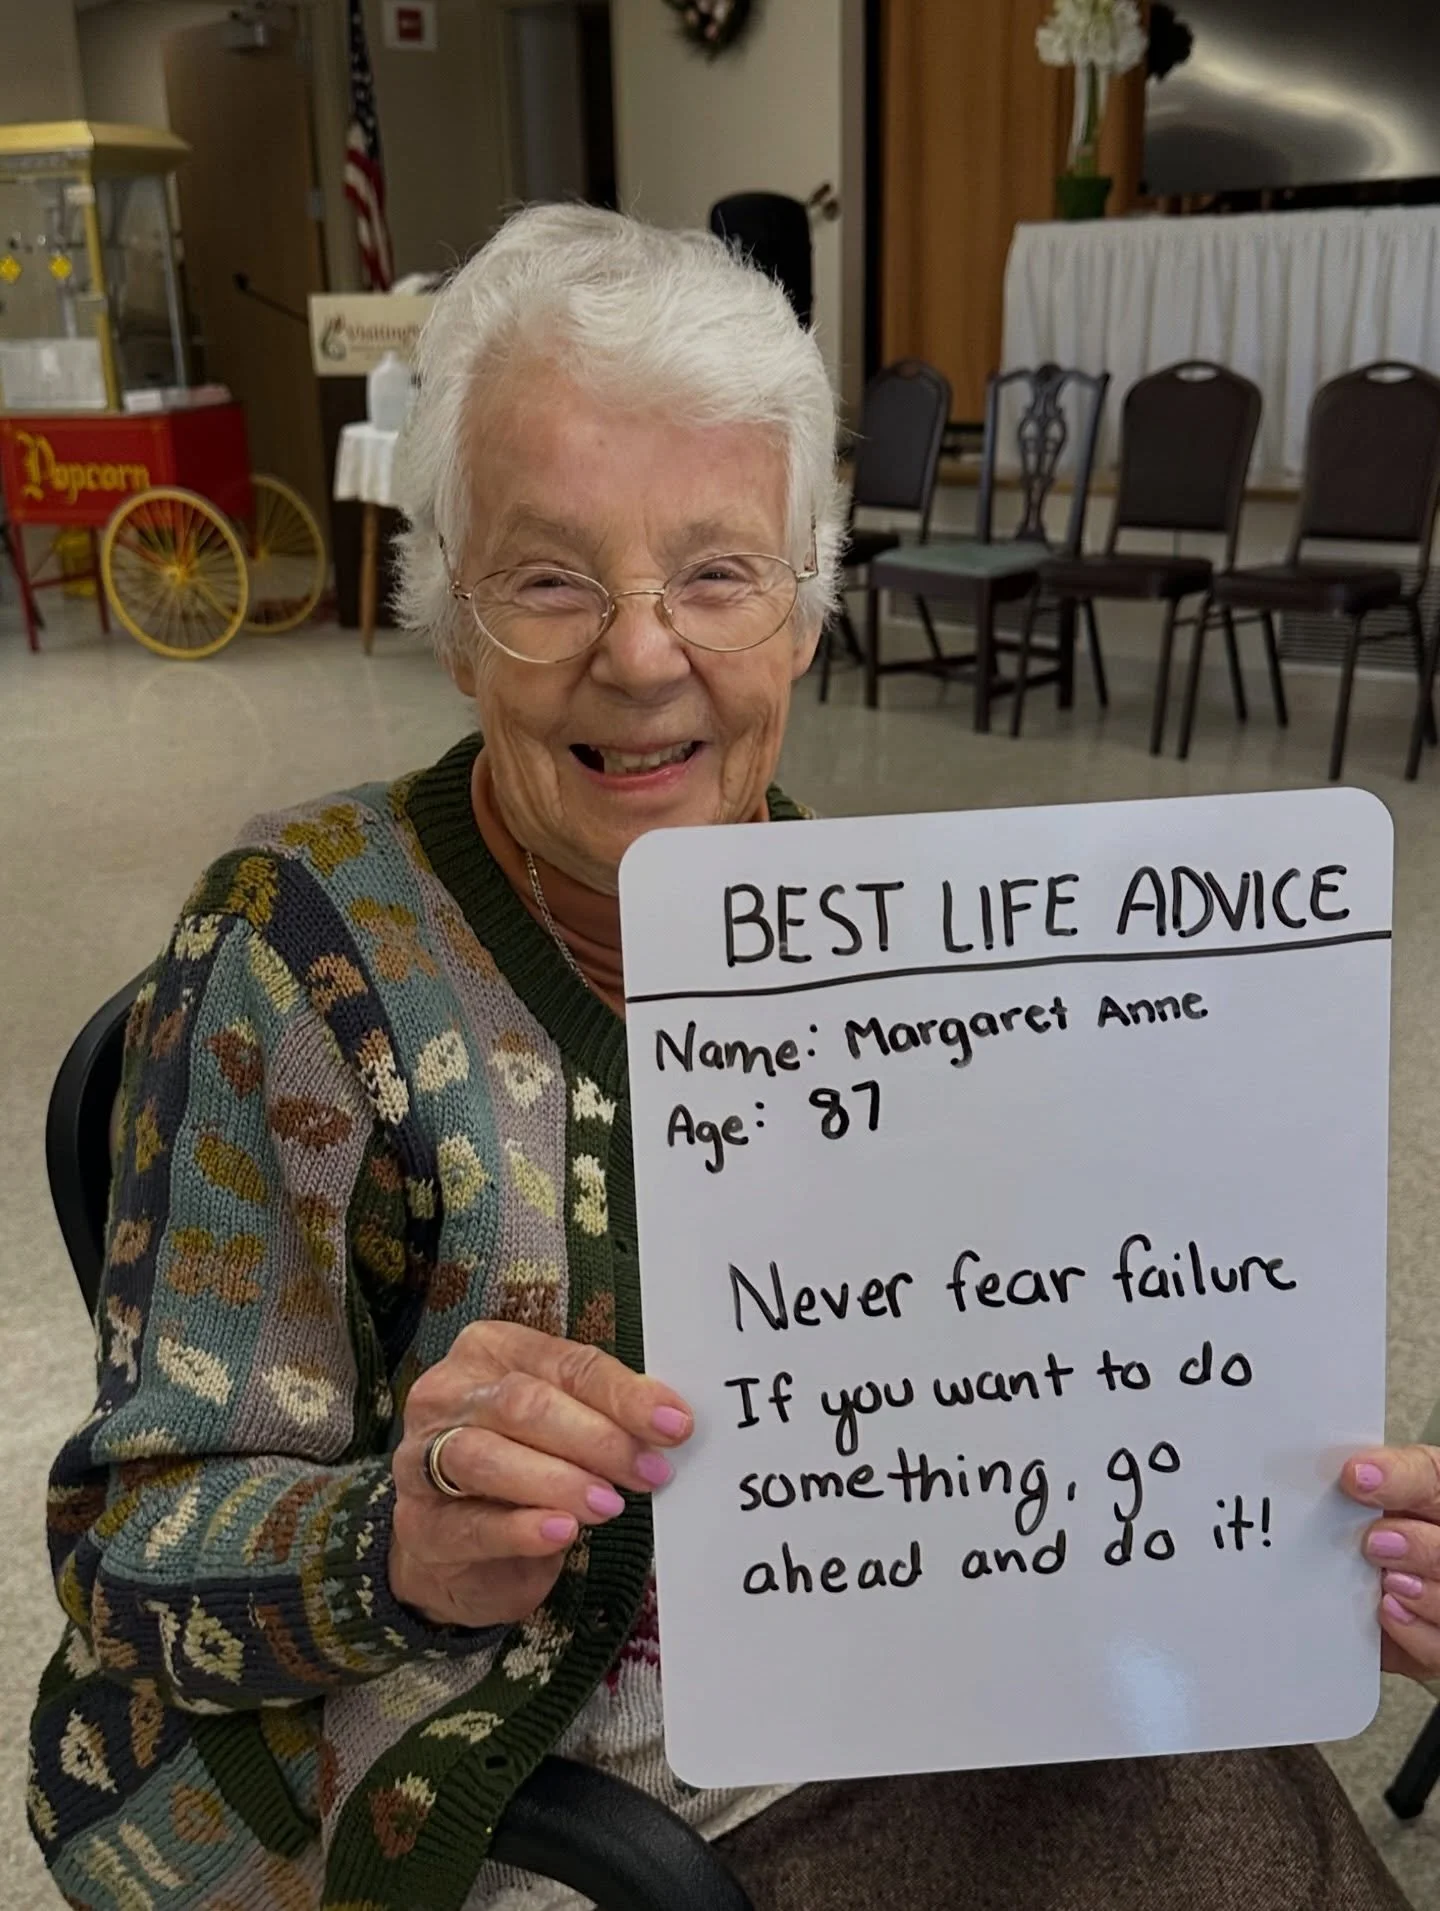 Popcorn
Visiting
BEST LIFE ADVICE
Name: Margaret Anne
Age: 87
Never fear failure
If you want to do
something, go
ahead and do it!